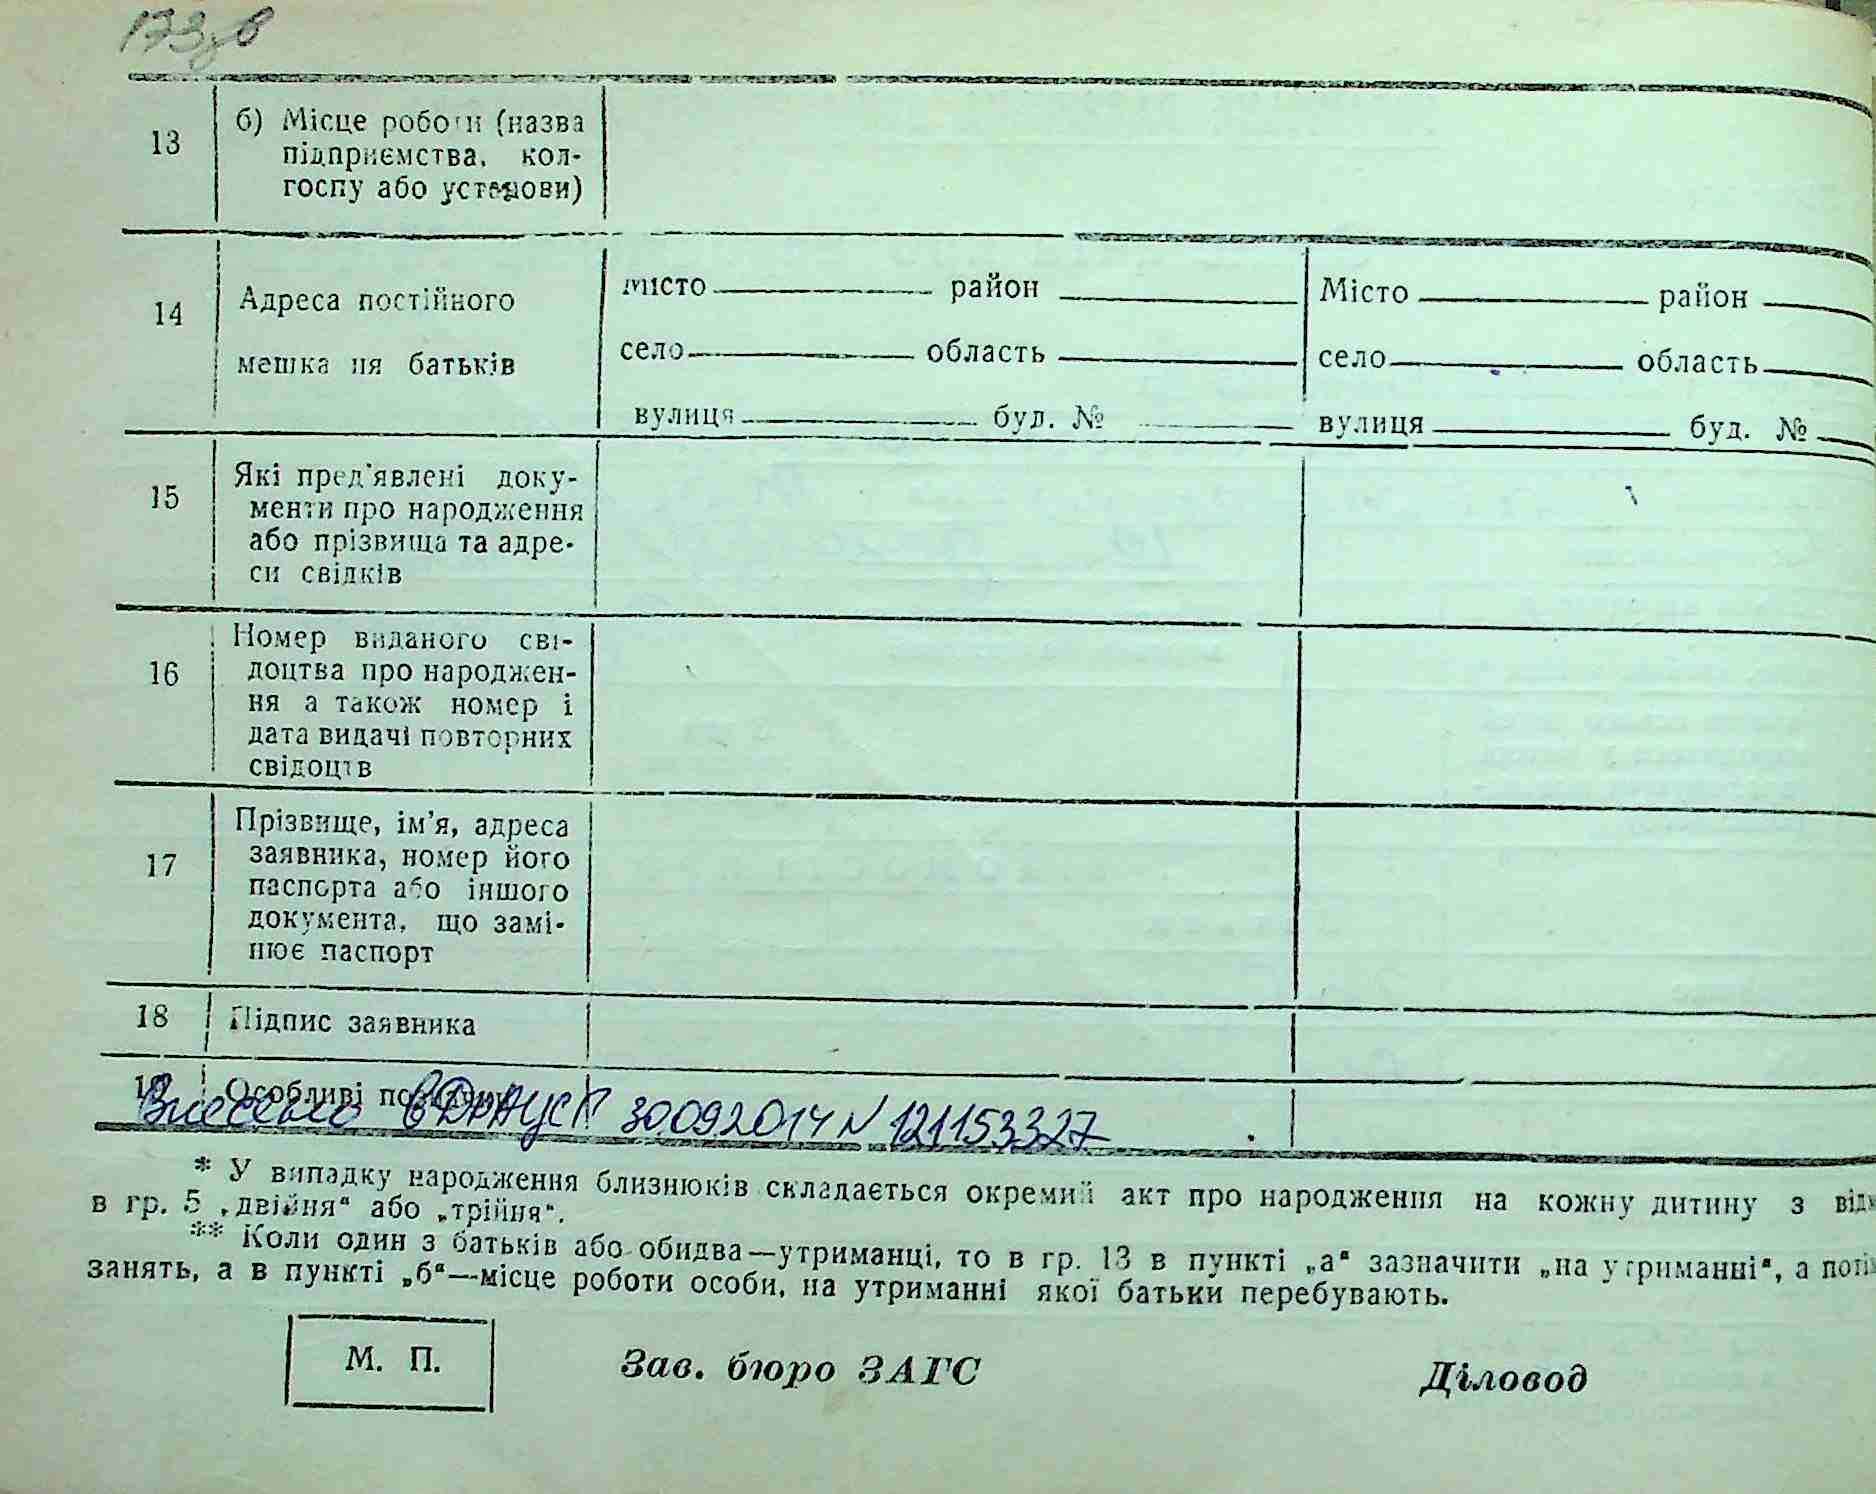 173зв
13
б) Місце роботи (назва
підприємства, кол-
госпу або установи)
14
Адреса постійного
мешка ня батьків
місто район
село область
вулиця буд. №
Місто район
село область
вулиця буд. №
15
Які пред'явлені доку-
менти про народження
або прізвища та адре-
си свідків
16
Номер виданого сві-
доцтва про народжен-
ня а також номер і
дата видачі повторних
свідоцтв
17
Прізвище, ім'я, адреса
заявника, номер його
паспорта або іншого
документа, що замі-
нює паспорт
18
Підпис заявника
19
Особливі
Внесено в ДРАЦСГ 30092014 N 121153327
* У випадку народження близнюків складається окремий акт про народження на кожну дитину з
в гр. 5 „двійня“ або „трійня“.
** Коли один з батьків або обидва—утриманці, то в гр. 13 в пункті „а“ зазначити „на утриманні“, а
занять, а в пункті „б“—місце роботи особи, на утриманні якої батьки перебувають.
М. П.
Зав. бюро ЗАГС
Діловод